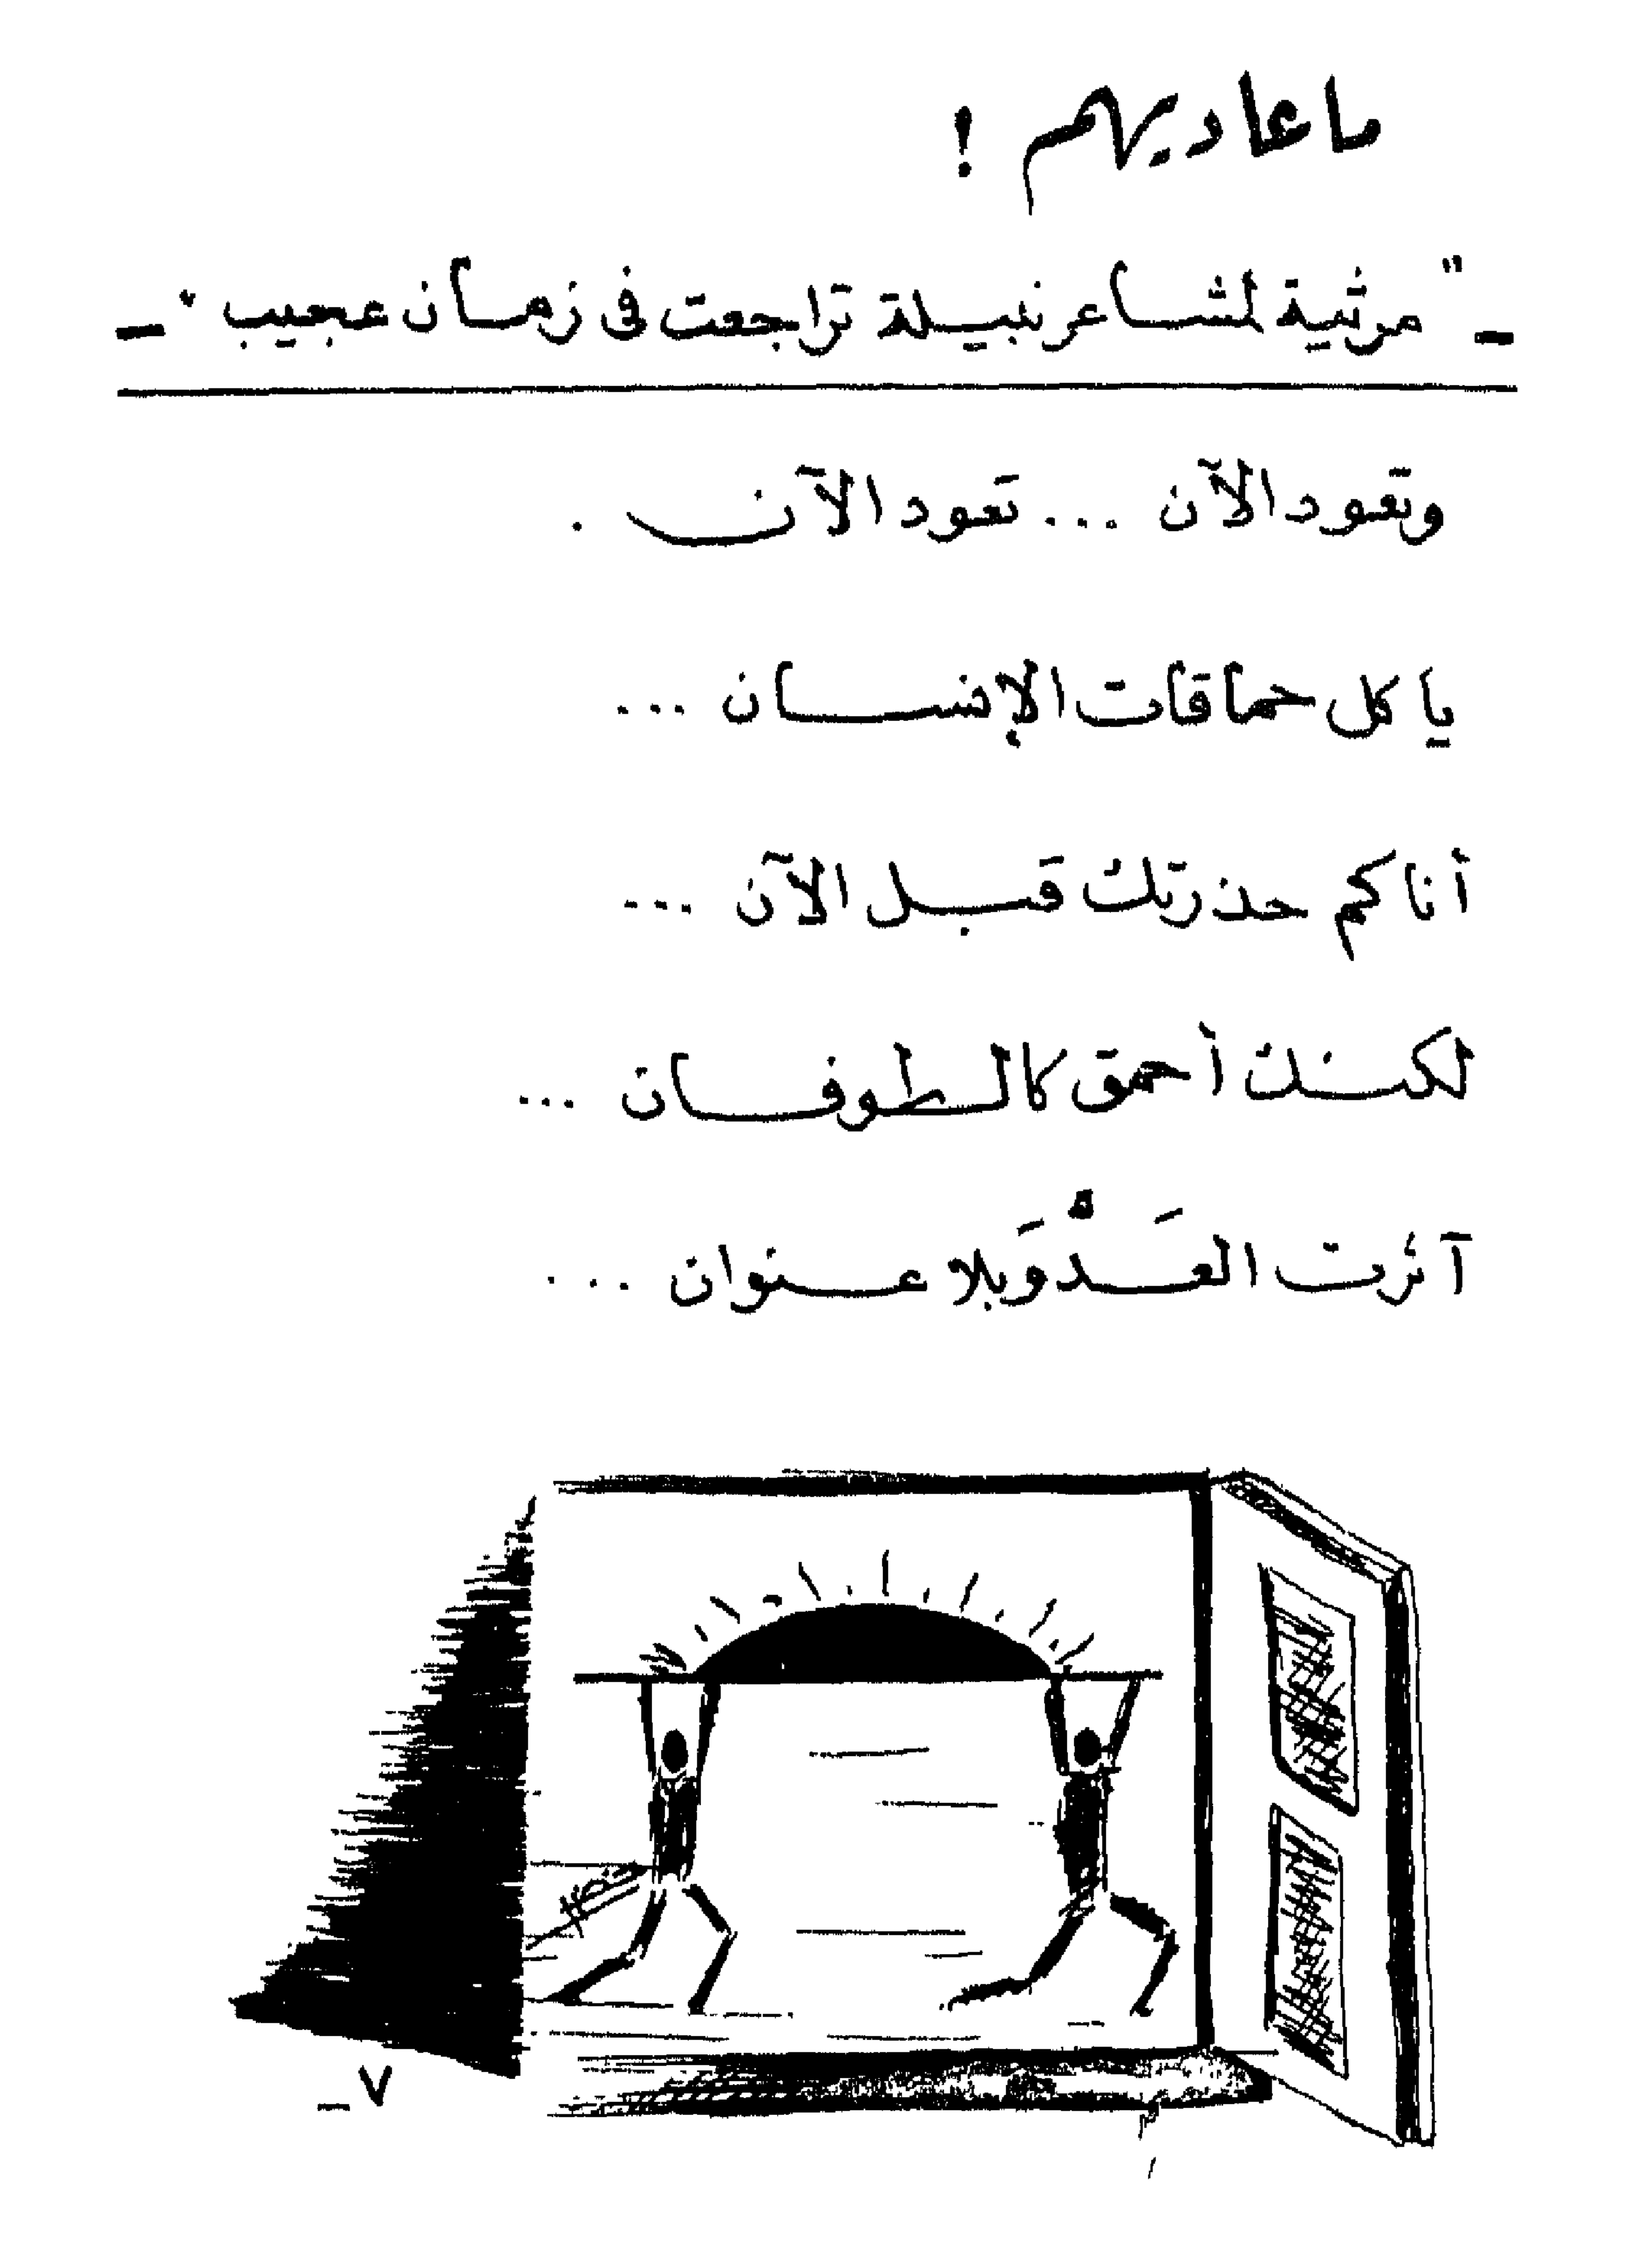 ما عاديهم !
- " مرثية لمشاعر نبيلة تراجعت فى زمان عجيب " -
وتعود الآن ... تعود الآن .
يا كل حماقات الإنسان ...
أنا كم حذرتك قبل الآن ...
لكنك أحمق كالطوفان ...
آثرت العَدْوَ بلا عنوان ...
٧ -